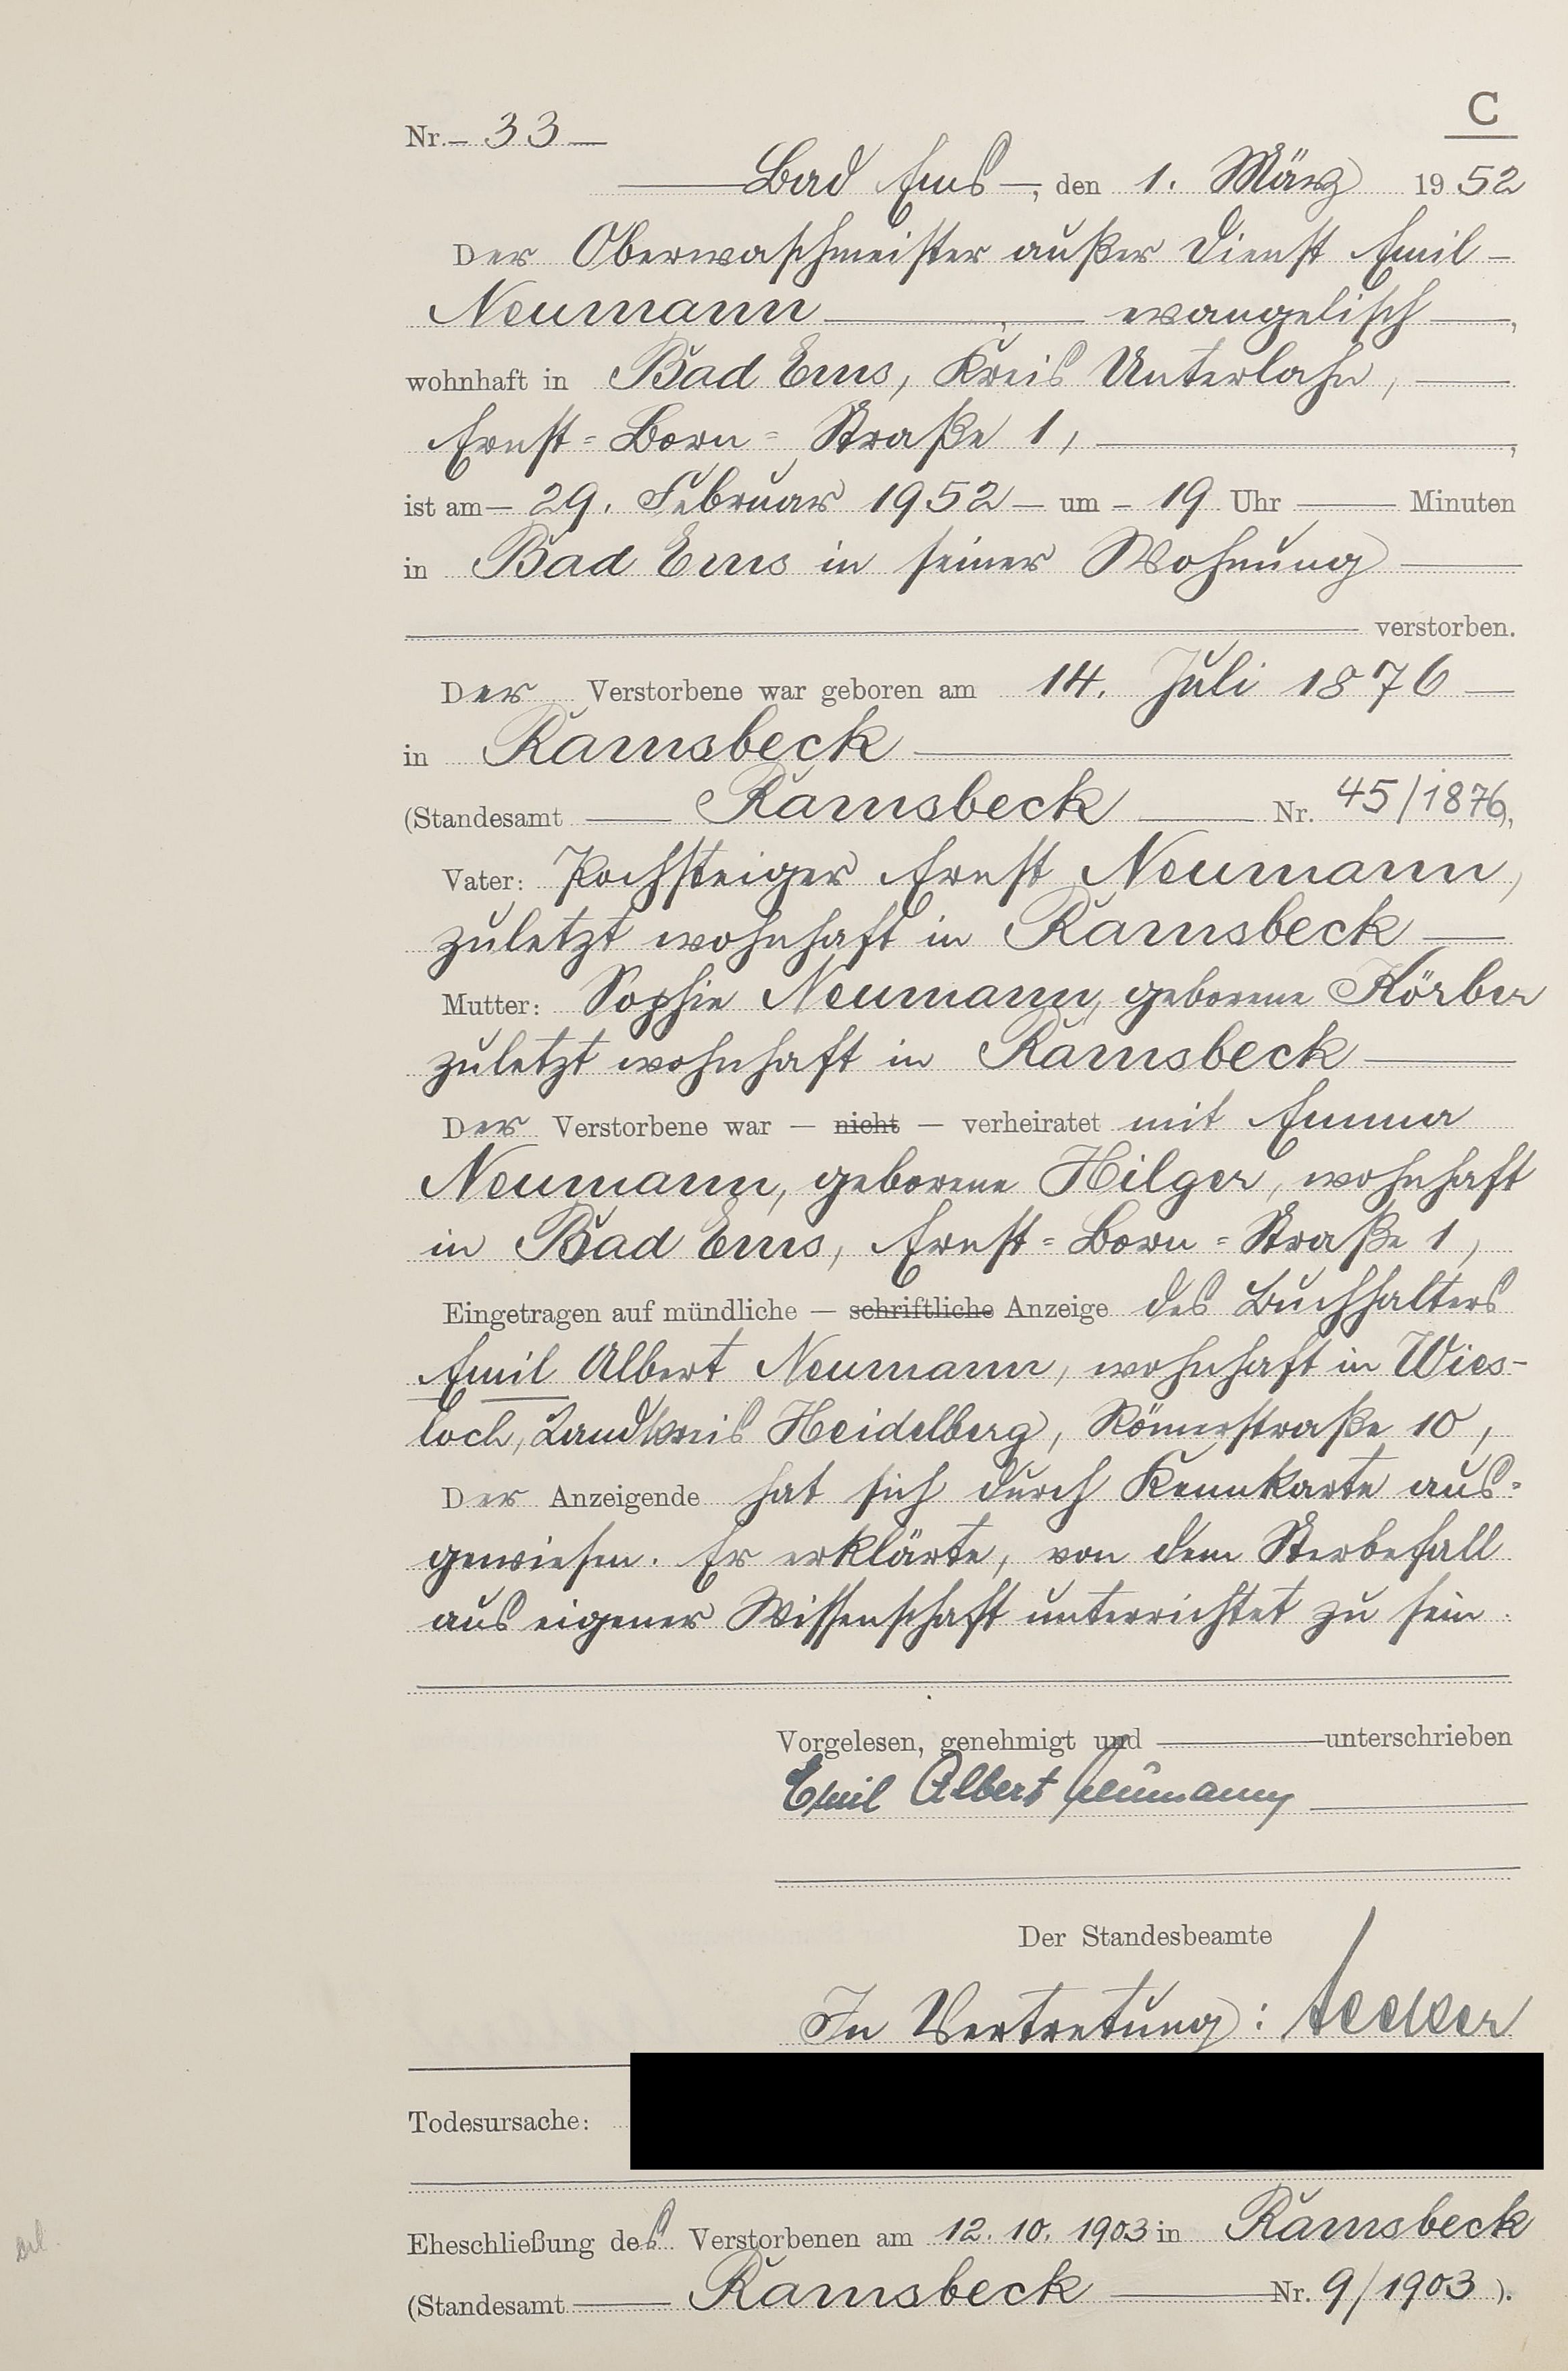 C
Nr. – 33 –
Bad Ems –, den 1. März 1952
Der Oberwachtmeister außer Dienst Emil –
Neumann –, – evangelisch –,
wohnhaft in Bad Ems, Kreis Unterlahn, –
Ernst=Born=Straße 1, –,
ist am – 29. Februar 1952 – um – 19 Uhr – Minuten
in Bad Ems in seiner Wohnung –
– verstorben.
Der Verstorbene war geboren am 14. Juli 1876 –
in Ramsbeck –
(Standesamt – Ramsbeck – Nr. 45/1876),
Vater: Pochsteiger Ernst Neumann,
zuletzt wohnhaft in Ramsbeck –
Mutter: Sophie Neumann, geborene Körber
zuletzt wohnhaft in Ramsbeck –
Der Verstorbene war – nicht – verheiratet mit Emma
Neumann, geborene Hilger, wohnhaft
in Bad Ems, Ernst=Born=Straße 1,
Eingetragen auf mündliche – schriftliche Anzeige des Buchhalters
Emil Albert Neumann, wohnhaft in Wies-
loch, Landkreis Heidelberg, Römerstraße 10,
Der Anzeigende hat sich durch Kennkarte aus=
gewiesen. Er erklärte, von dem Sterbefall
aus eigener Wissenschaft unterrichtet zu sein.
Vorgelesen, genehmigt und – unterschrieben
Emil Albert Neumann –
Der Standesbeamte
In Vertretung:
Todesursache:
Eheschließung des Verstorbenen am 12.10.1903 in Ramsbeck
(Standesamt – Ramsbeck – Nr. 9/1903).